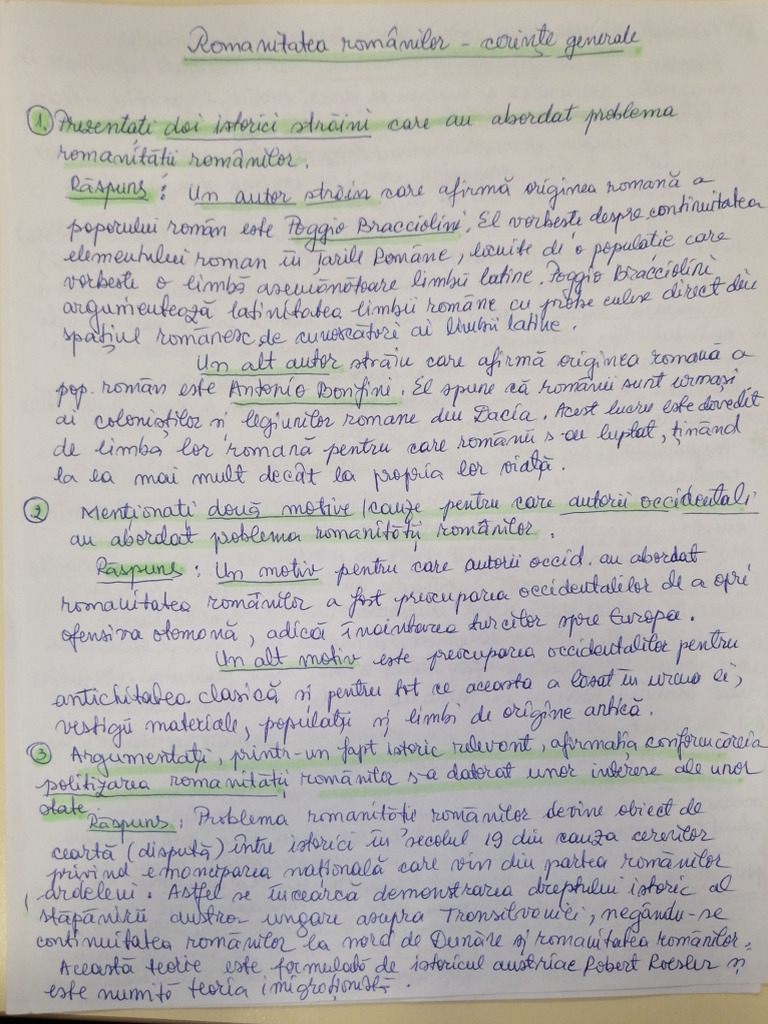 Romanitatea românilor - cerințe generale
1. Prezentati doi istorici străini care au abordat problema
romanității românilor.
Răspuns : Un autor străin care afirmă originea romană a
poporului român este Poggio Bracciolini. El vorbeste despre continuitatea
elementului roman în Țarile Române, locuite de o populatie care
vorbeste o limbă asemănătoare limbii latine. Poggio Bracciolini
argumentează latinitatea limbii române cu probe culese direct din
spațiul românesc de cunoscători ai limbii latine.
Un alt autor străin care afirmă originea romană a
pop. român este Antonio Bonfini. El spune că românii sunt urmași
ai coloniștilor și legiunilor romane din Dacia. Acest lucru este dovedit
de limba lor romană pentru care românii s-au luptat, ținând
la ea mai mult decât la propria lor viață.
2 Menționați două motive /cauze pentru care autorii occidentali
au abordat problema romanității românilor.
Răspuns : Un motiv pentru care autorii occid. au abordat
romanitatea românilor a fost preocuparea occidentalilor de a opri
ofensiva otomană, adică înaintarea turcilor spre Europa.
Un alt motiv este preocuparea occidentalilor pentru
antichitatea clasică și pentru tot ce aceasta a lăsat în urma ei,
vestigii materiale, populații și limbi de origine antică.
3 Argumentați, printr-un fapt istoric relevant, afirmația conform căreia
politizarea romanității românilor s-a datorat unor interese ale unor
state.
Răspuns : Problema romanității românilor devine obiect de
ceartă (dispută) între istorici în secolul 19 din cauza cererilor
privind emanciparea națională care vin din partea românilor
ardeleni. Astfel se încearcă demonstrarea dreptului istoric al
stăpânirii austro ungare asupra Transilvaniei, negându-se
continuitatea românilor la nord de Dunăre și romanitatea românilor.
Această teorie este formulată de istoricul austriac Robert Roesler și
este numită teoria imigraționistă.